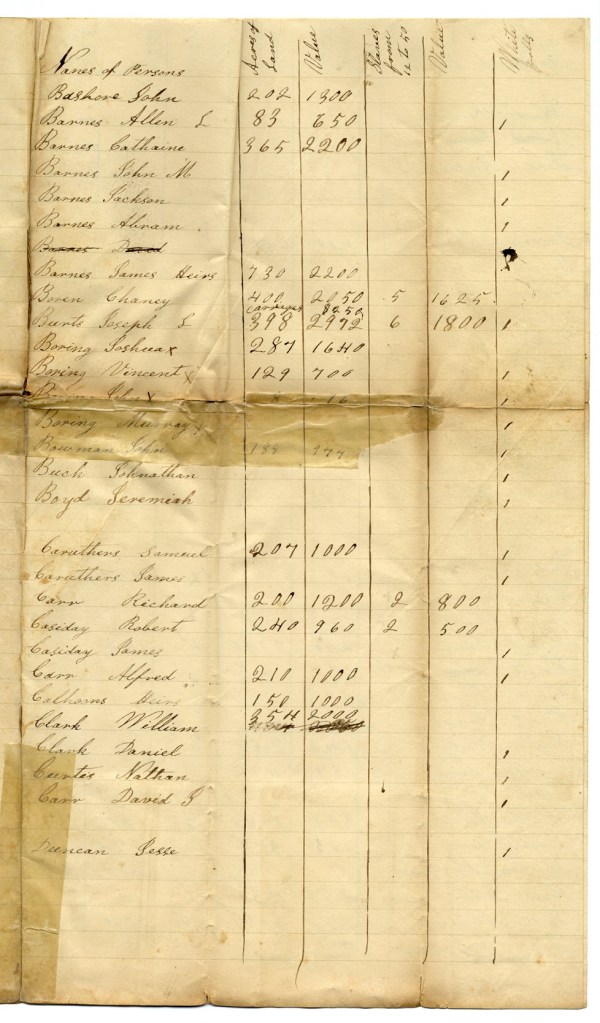 Names of Persons Acres of Land Value Slaves from 12 to 50 Value White polls
Bashore John 202 1300
Barnes Allen L 83 650 1
Barnes Cathaine 365 2200
Barnes John M 1
Barnes Jackson 1
Barnes Abram 1
Barnes David
Barnes James Heirs 730 2200
Boren Chaney 400 2050 5 1625
carriages 8250
Burts Joseph L 398 2972 6 1800 1
Boring Joshua x 287 1640
Boring Vincent x 129 700 1
Boring x 1
Boring Murray x 1
Bowman John 189 977 1
Buch Johnathan 1
Boyd Jeremiah 1
Caruthers Samuel 207 1000 1
Caruthers James 1
Carr Richard 200 1200 2 800
Casiday Robert 240 960 2 500
Casiday James 1
Carr Alfred 210 1000 1
Calhoms Heirs 150 1000
Clark William 354 2000
Clark Daniel 1
Curtis Nathan 1
Carr David J 1
Duncan Jesse 1